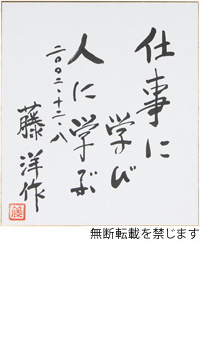 仕事に
学び
人に学ぶ
二〇〇二・十二・八
藤洋作
無断転載を禁じます